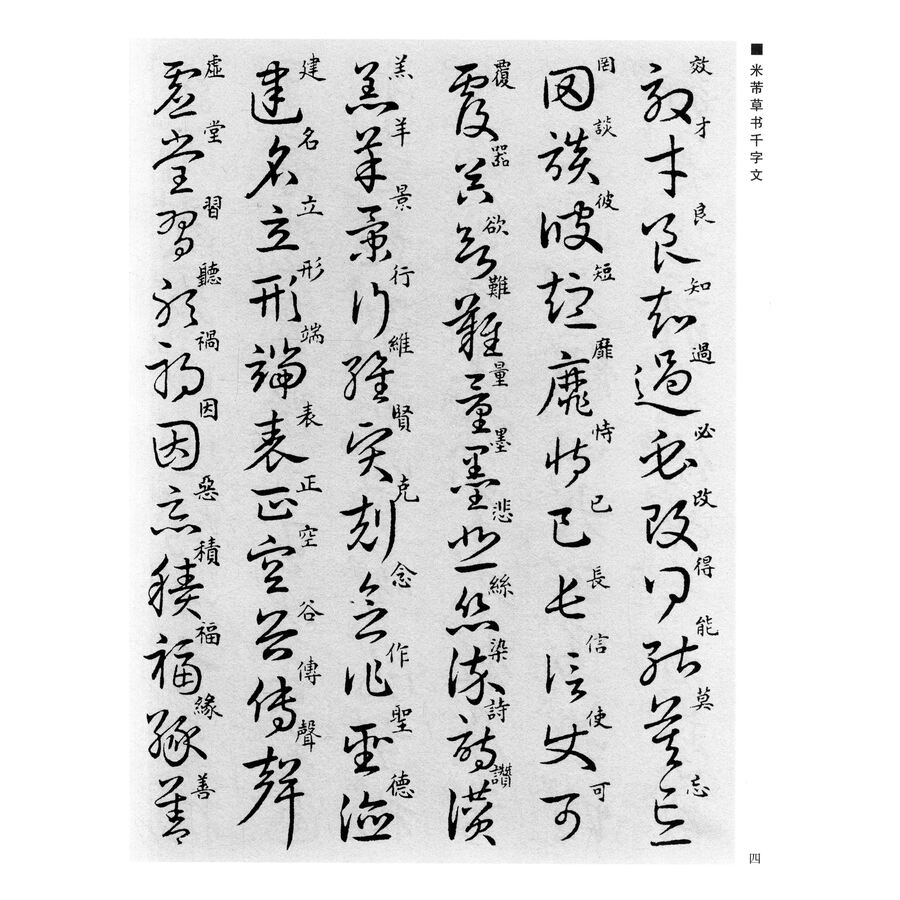 米芾草书千字文
效才良知過必改得能莫忘
罔談彼短靡恃已長信使可
覆器欲難量墨悲絲染詩讚
羔羊景行維賢克念作聖德
建名立形端表正空谷傳聲
虛堂習聽禍因惡積福緣善
四